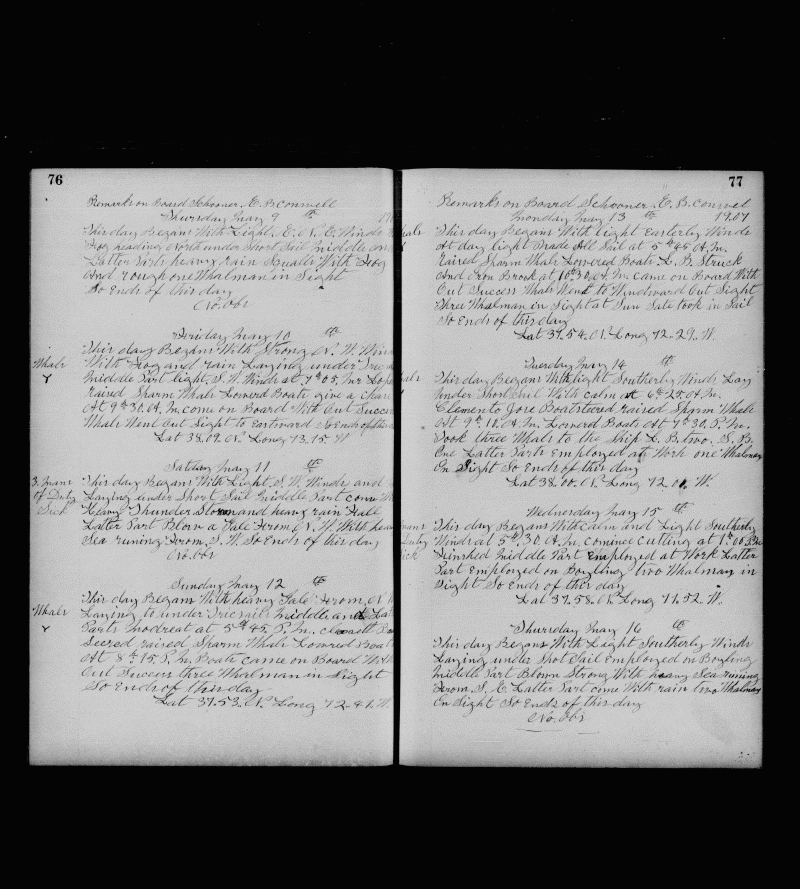 76
Remarks on Board Schooner E. B. Conwell
Thursday May 9 th 190
This day Begans With Light E. N. E. Winds
Fog heading North under Short Sail middle and
Latter Parts heavy rain Squalls With Fog
And rough one Whalman in Sight
So Ends of this day
No. obs
Friday May 10 th
This day Begans With Strong N. W. Wind
Whals With Fog and rain Laying under
middle Part light S. W. Winds at 7 h 05. m
raised Sparm Whals Lowerd Boats give a chase
At 9 h 30. A. m. come on Board With Out Succes
Whals Went Out Sight to Eastward So Ends of this
Lat 38.02. N. Long 73.15 W
Satday May 11 th
3. mans This day Begans With Light S. W. Winds and
of Duty Laying under Short Sail middle Part come
Sick Heavy Thunder Storm and heavy rain Hall
Latter Part Blow a Gale From N. W. With heavy
Sea runing From S. W. So Ends of this day
No. obs
Sunday May 12 th
This day Begans With heavy Gale From N. W
Whals Laying to under middle and La
Parts modreat at 5 h 45. P. m.
raised Sparm Whals Lowred Boat
At 8 h 15. P. m. Boats came on Board With
Out Sucess three Whalman in Sight
So Ends of this day
Lat 37.53. N. Long 72.41. W.
77
Remarks on Board Schooner E. B. Conwel
Monday May 13 th 1907
This day Begans With light Easterly Winds
At day light Made All Sail at 5 h 45 A. m.
raised Sparm Whals Lowered Boats L. B. Struck
And Iron Broock at 10 h 30. A. m. came on Board With
Out Success Whals Went to Windward Out Sight
Three Whalman in Sight at Sun Sate took in Sail
So Ends of this day
Lat 37.54. N. Long 72.29. W.
Tuesday May 14 th
This day Begans With light Southerly Winds Lay
under Short Sail With calm at 6 h 25 A. m.
Clemento Jose Boatsteered raised Sparm Whals
At 9 h 11. A. m. Lowered Boats At 1 h 30. P. m.
Took three Whals to the Ship L. B. two. S. B.
One Latter Parts Employed at Work one Whalman
In Sight So Ends of this day
Lat 38.00. N. Long 72 01. W.
Wednesday May 15 th
This day Begans With calm and Light Southerly
Winds at 5 h 30. A. m. comince cutting at 1 h 00. P. m.
Feinshed middle Part Employed at Work Latter
Part Employed on Boyling two Whalman in
Sight So Ends of this day
Lat 37.58. N. Long 71.52. W.
Thursday May 16 th
This day Begans With Light Southerly Winds
Laying under Shot Sail Employed on Boyling
middle Part Blown Strong With heavy Sea runing
From S. E. Latter Part come With rain two Whalman
In Sight So Ends of this day
No. obs